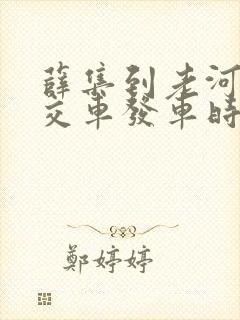 薛集到老河
交車發車時
鄭婷婷